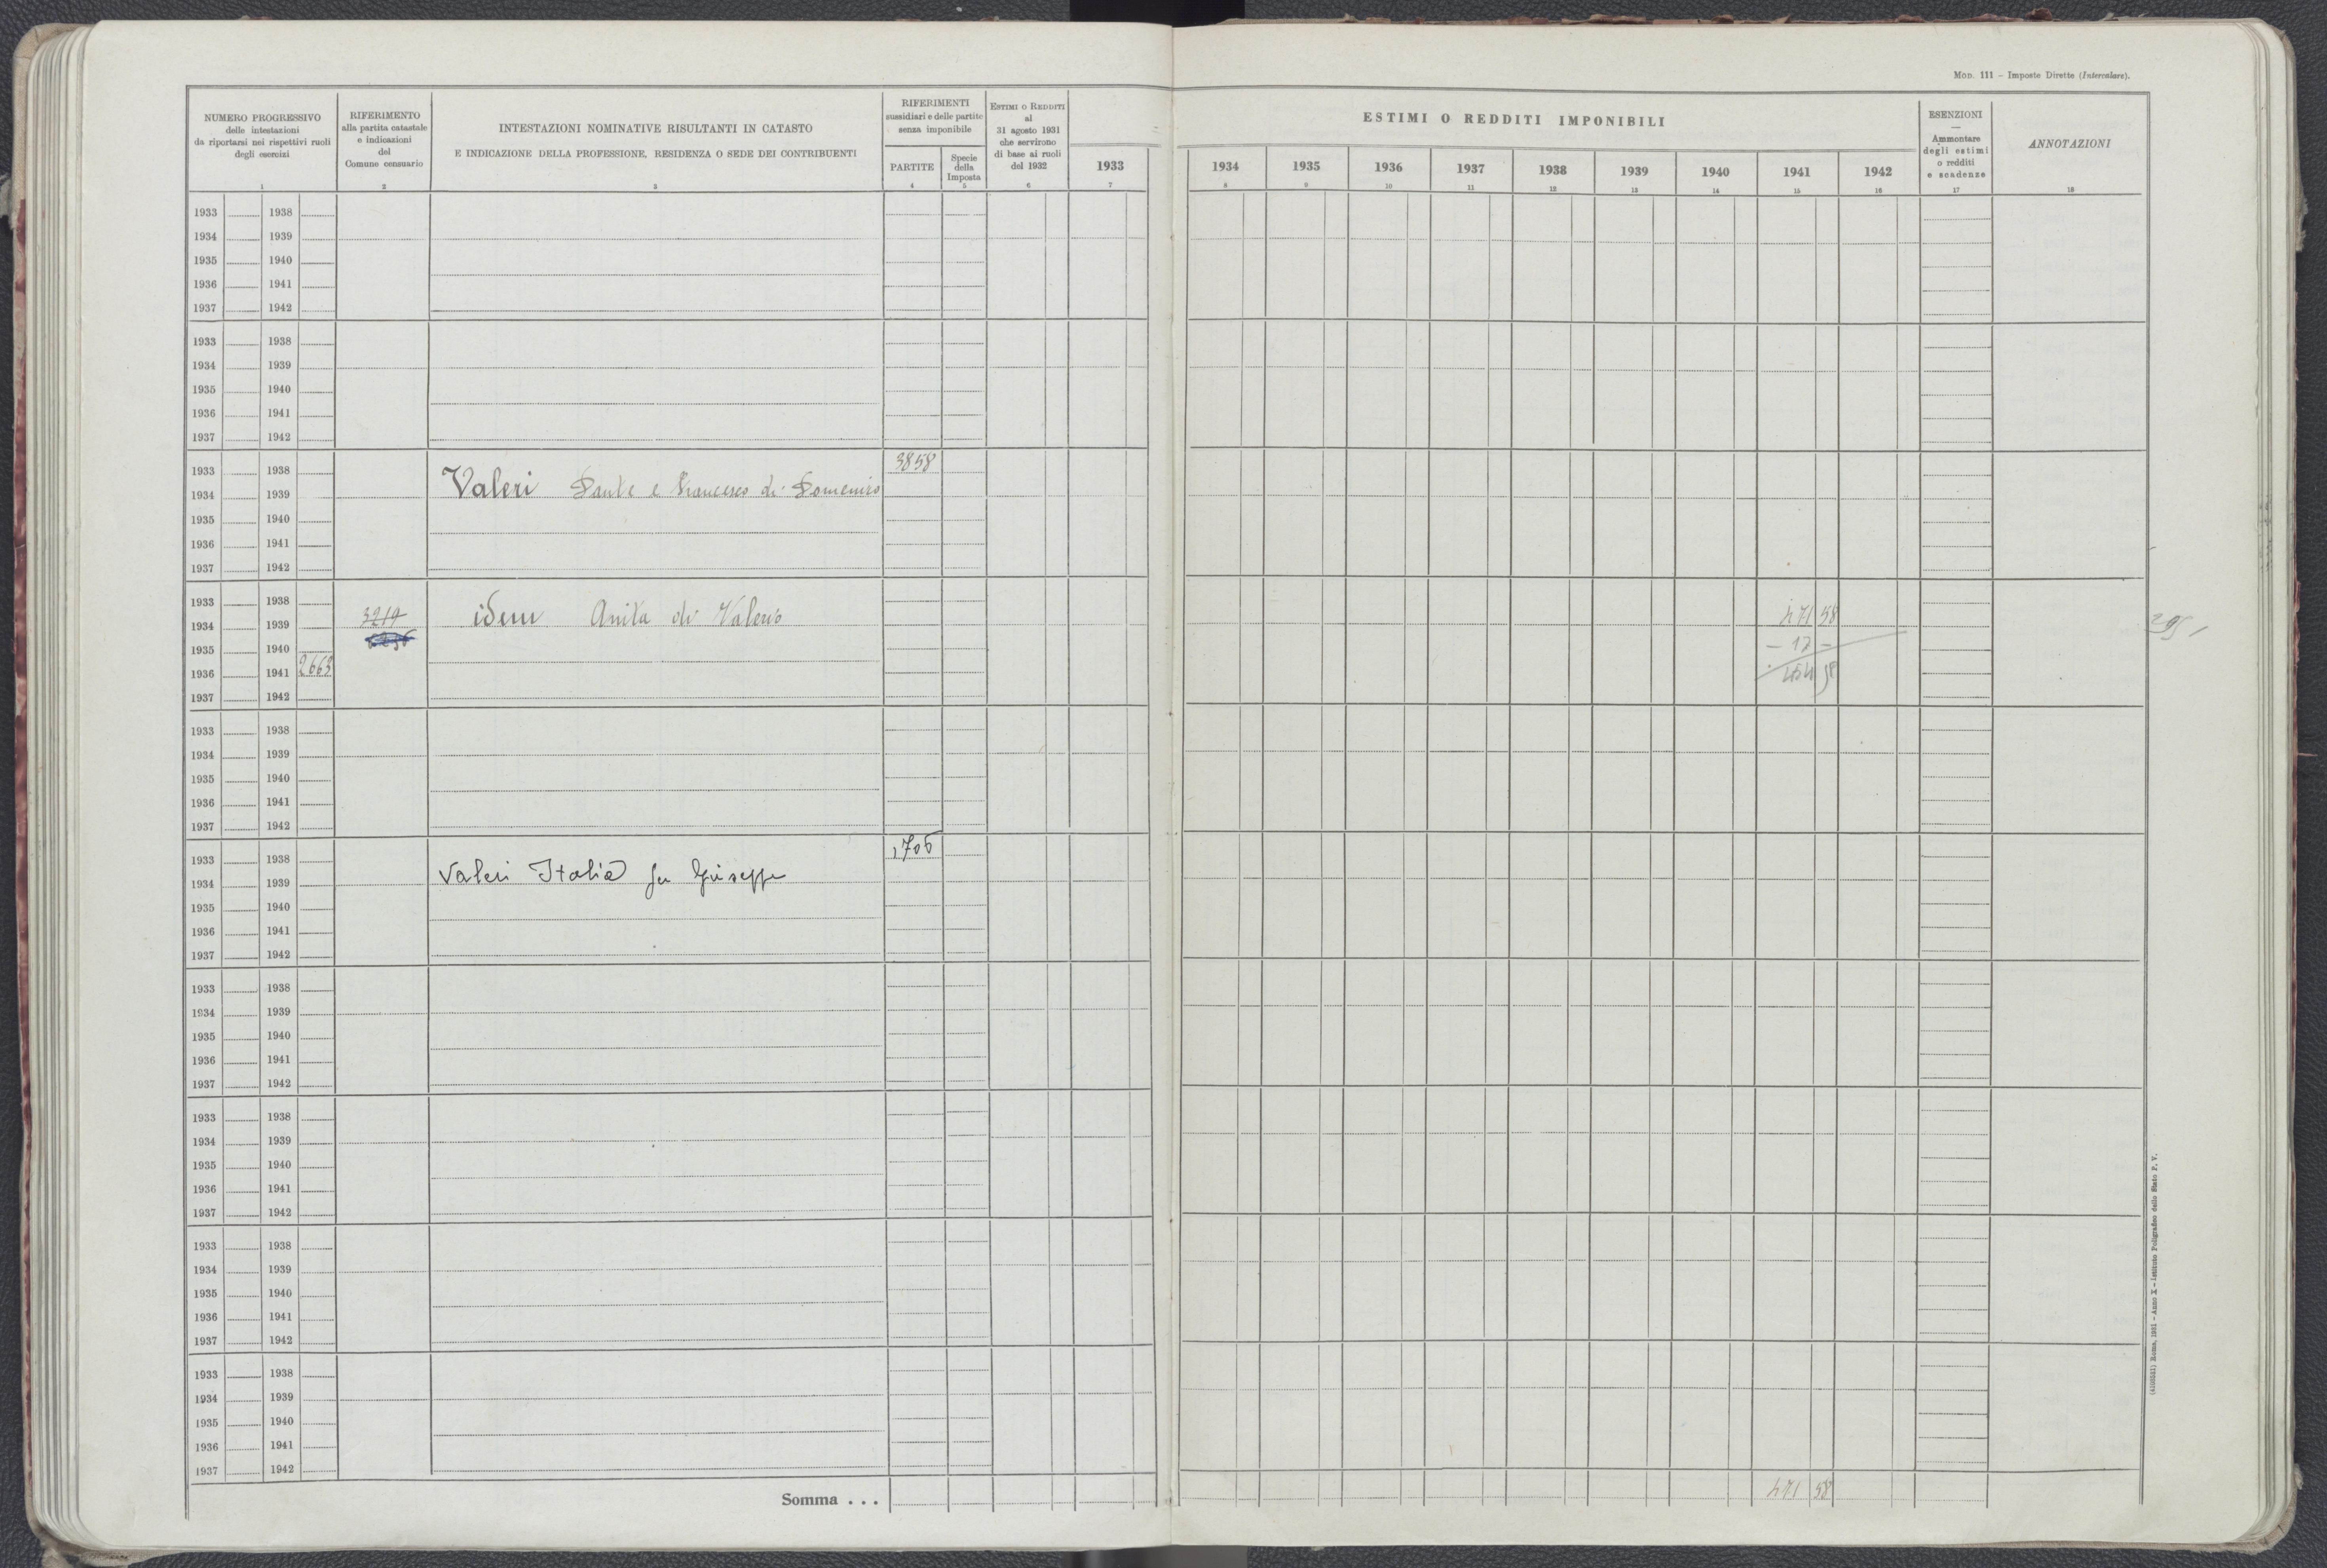 Mod. 111 – Imposte Dirette (Intercalare).
NUMERO PROGRESSIVO
delle intestazioni
da riportarsi nei rispettivi ruoli
degli esercizi
1
RIFERIMENTO
alla partita catastale
e indicazioni
del
Comune censuario
2
INTESTAZIONI NOMINATIVE RISULTANTI IN CATASTO
E INDICAZIONE DELLA PROFESSIONE, RESIDENZA O SEDE DEI CONTRIBUENTI
3
RIFERIMENTI
sussidiari e delle partite
senza imponibile
PARTITE
4
Specie
della
Imposta
5
Estimi o Redditi
al
31 agosto 1931
che servirono
di base ai ruoli
del 1932
6
1933
7
ESTIMI O REDDITI IMPONIBILI
1934 1935 1936 1937 1938 1939 1940 1941 1942
8 9 10 11 12 13 14 15 16
ESENZIONI
—
Ammontare
degli estimi
o redditi
e scadenze
17
ANNOTAZIONI
18
1933 1938
1934 1939
1935 1940
1936 1941
1937 1942
1933 1938
1934 1939
1935 1940
1936 1941
1937 1942
1933 1938 3858
1934 1939 Valeri Dante e Francesco di Domenico
1935 1940
1936 1941
1937 1942
1933 1938
1934 1939 3219 idem Anita di Valerio 471 58
1935 1940 – 17 –
1936 1941 2663 454 58
1937 1942
1933 1938
1934 1939
1935 1940
1936 1941
1937 1942
1933 1938 1706
1934 1939 Valeri Italia fu Giuseppe
1935 1940
1936 1941
1937 1942
1933 1938
1934 1939
1935 1940
1936 1941
1937 1942
1933 1938
1934 1939
1935 1940
1936 1941
1937 1942
1933 1938
1934 1939
1935 1940
1936 1941
1937 1942
1933 1938
1934 1939
1935 1940
1936 1941
1937 1942
Somma . . . 471 58
Roma, 1931 – Anno X – Istituto Poligrafico dello Stato P. V.